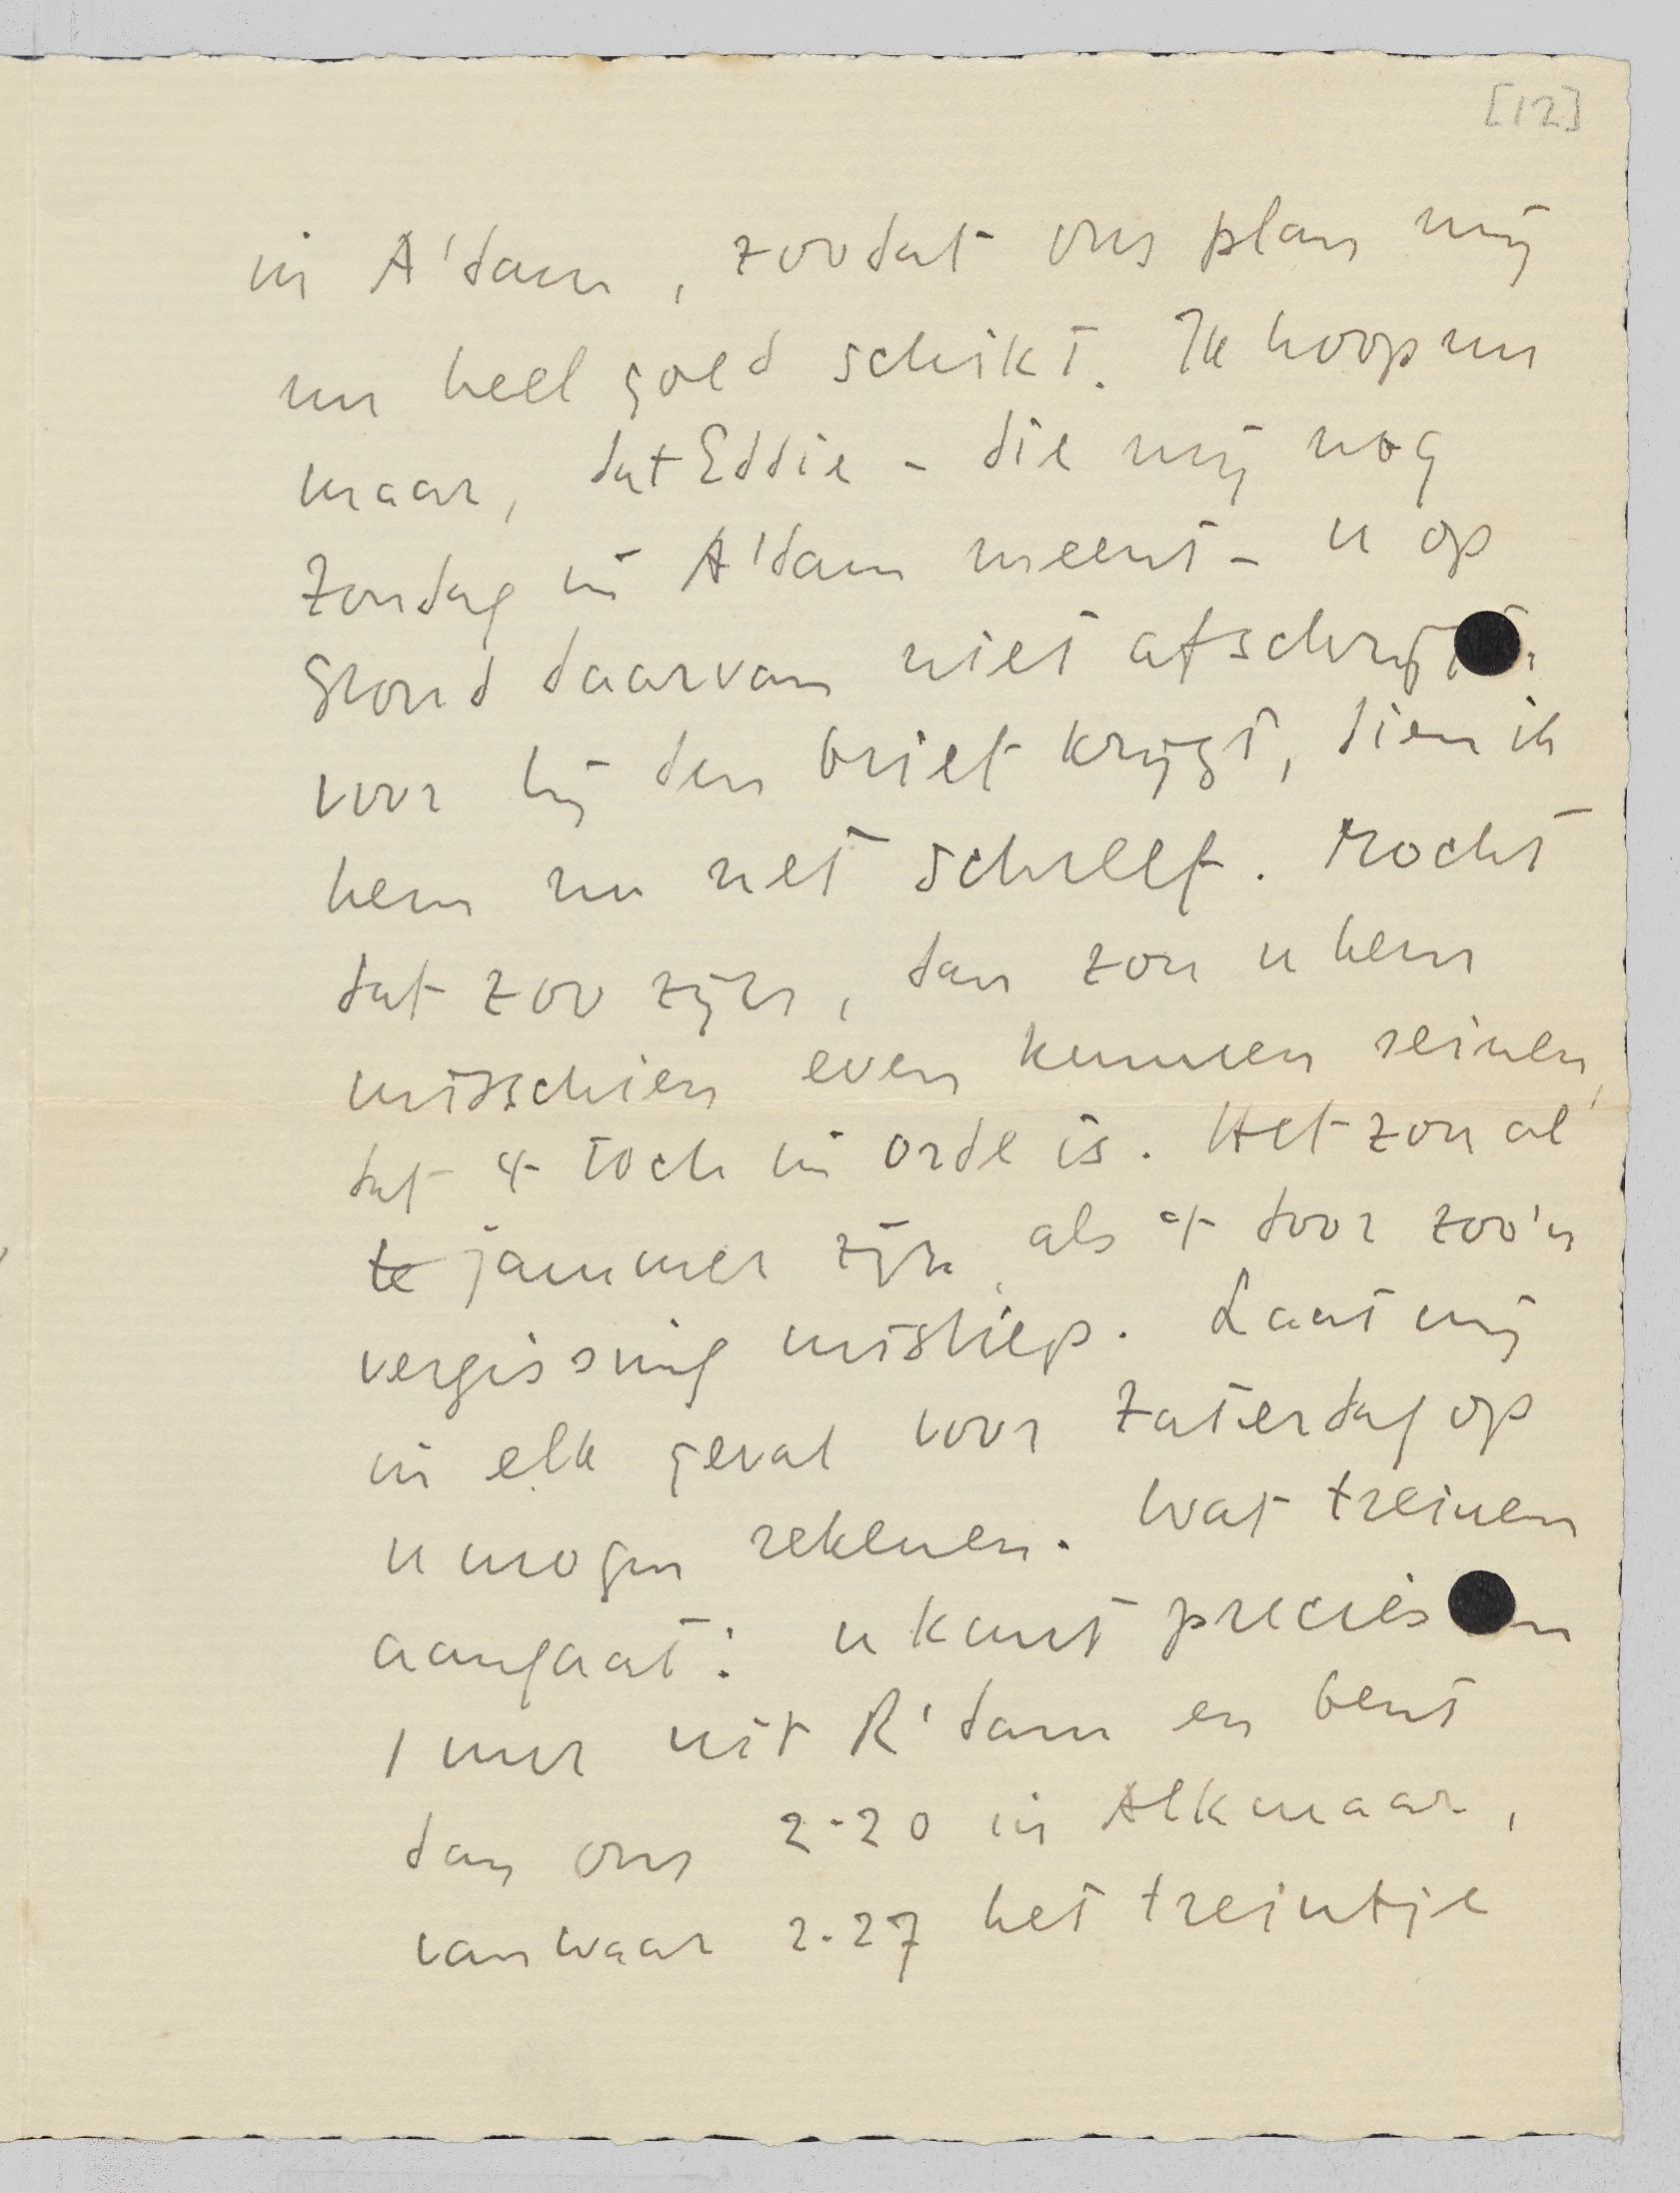 [12]
in A'dam, zoodat ons plan mij
nu heel goed schikt. Ik hoop nu
maar, dat Eddie - die mij nog
Zondag in A'dam meent - u op
grond daarvan niet afschrijft,
voor hij den brief krijgt, dien ik
hem nu net schreef. Mocht
dat zoo zijn, dan zou u hem
misschien even kunnen seinen,
dat 't toch in orde is. Het zou al
te jammer zijn, als 't door zoo'n
vergissing misliep. Laat mij
in elk geval voor Zaterdag op
u mogen rekenen. Wat treinen
aangaat: u kunt precies om
1 uur uit R'dam en bent
dan ons 2.20 in Alkmaar,
van waar 2.27 het treintje